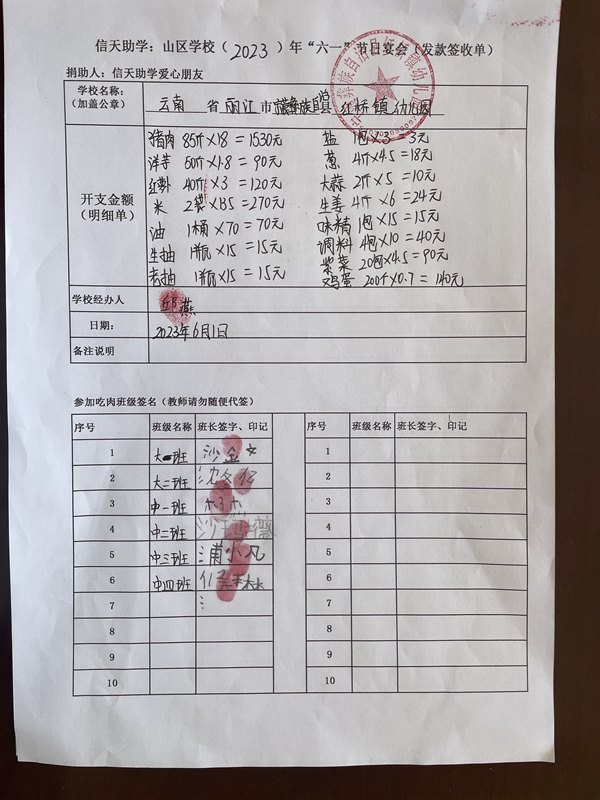 信天助学：山区学校（2023）年“六一”节日宴会（发款签收单）
捐助人：信天助学爱心朋友
学校名称：（加盖公章） 云南 省 丽江 市 宁蒗彝族自治县 红桥镇幼儿园
开支金额（明细单）
猪肉 85斤×18=1530元 盐 1包×3=3元
洋芋 50斤×1.8=90元 葱 4斤×4.5=18元
40斤×3=120元 大蒜 2斤×5=10元
米 2袋×135=270元 生姜 4斤×6=24元
油 1桶×70=70元 味精 1包×15=15元
生抽 1瓶×15=15元 调料 4包×10=40元
老抽 1瓶×15=15元 紫菜 20包×4.5=90元
鸡蛋 200个×0.7=140元
学校经办人 燕
日期： 2023年6月1日
备注说明
参加吃肉班级签名（教师请勿随便代签）
序号 班级名称 班长签字、印记 序号 班级名称 班长签字、印记
1 大一班 沙金 1
2 大二班 沈 2
3 中一班 3
4 中二班 沙 薇 4
5 中三班 浦小凡 5
6 中四班 6
7 7
8 8
9 9
10 10